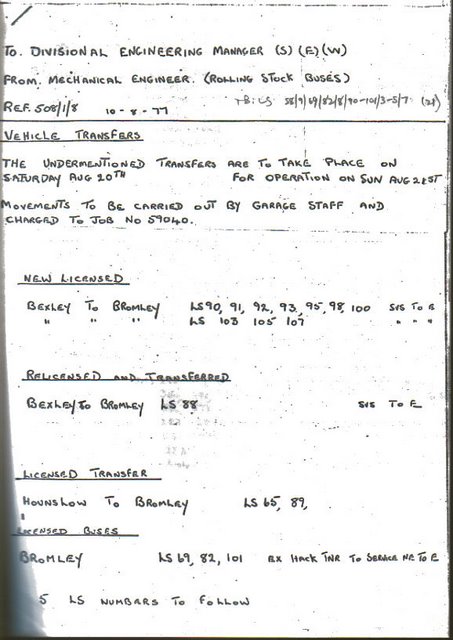 TO. DIVISIONAL ENGINEERING MANAGER (S) (E) (W)
FROM. MECHANICAL ENGINEER. (ROLLING STOCK BUSES)
REF. 508/1/8 10-8-77
VEHICLE TRANSFERS
THE UNDERMENTIONED TRANSFERS ARE TO TAKE PLACE ON
SATURDAY AUG 20TH FOR OPERATION ON SUN AUG 21ST
MOVEMENTS TO BE CARRIED OUT BY GARAGE STAFF AND
CHARGED TO JOB NO 59040.
NEW LICENSED
BEXLEY TO BROMLEY LS 90, 91, 92, 93, 95, 98, 100 SVS TO E
" " " LS 103 105 107 " " "
RELICENSED AND TRANSFERRED
BEXLEY TO BROMLEY LS 88 SVS TO E
LICENSED TRANSFER
HOUNSLOW TO BROMLEY LS 65, 89,
LICENSED BUSES
BROMLEY LS 69, 82, 101 EX HACK TNR TO SERVICE NR TO E
5 LS NUMBARS TO FOLLOW